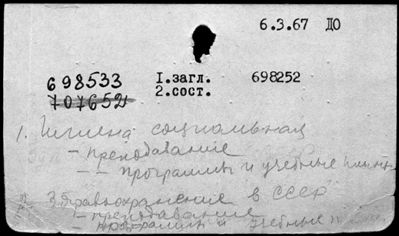 6.3.67 ДО
698533 1.загл. 698252
707652 2.сост.
1. Гигиена социальная
- преподавание
- - программы и учебные планы
2. Здравоохранение в СССР
- преподавание
- программы и учебные